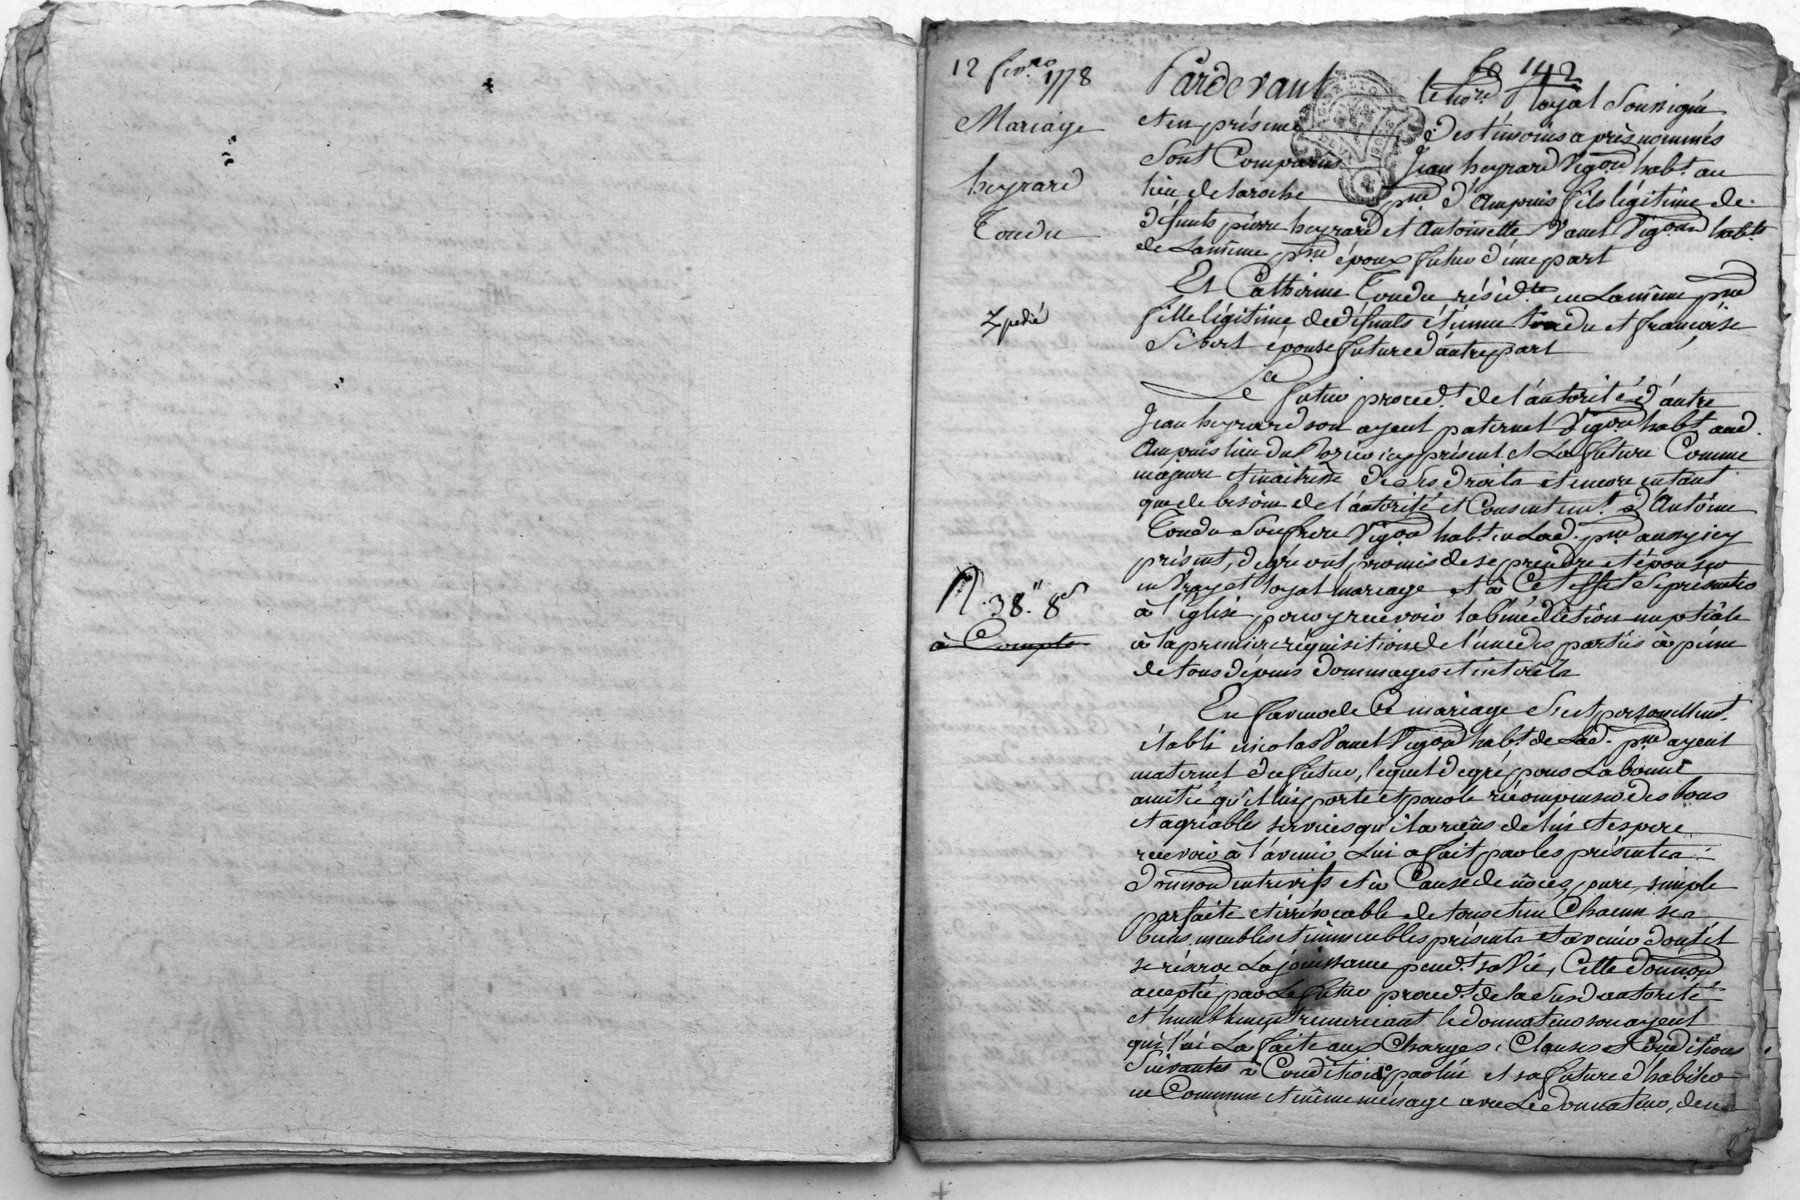 12 fév.ro 1778
Mariage
heyrard
Coudu
Expédié
R. 38.'' 8 s
à Compte
fo 142
Pardevant le no.re Royal Soussigné
et en présence des témoins après nommés
Sont Comparus Jean heyrard Vigon habt. au
lieu de laroche pss.e d'Ampuis fils légitime de
défunts pierre heyrard et Antoinette Vanet Vigons habts
de la même pss.e époux futur d'une part
Et Catherine Coudu résid.te en la même pss.e
fille légitime de défunts étienne Coudu et françoise
Sibert épouse future d'autre part
Le futur proced.t de l'autorité d'autre
Jean heyrard son ayeul paternel Vigon habt. aud.
Ampuis lieu du icy présent et La future Comme
majeure et maitresse de Ses droits et encore en tant
que de besoin de l'autorité et Consentem.t d'Antoine
Coudu Son frere Vigon habt. en Lad. pss.e aussy icy
présent, de gré ont promis de se prendre et épouser
en Vray et loyal mariage et à Cet effet Se présenter
à l'église pour y recevoir la bénédiction nuptiale
à la premiere réquisition de l'une des parties à peine
de tous dépens dommages et intérêts
En faveur de Ce mariage S'est personellemt.
établi nicolas Vanet Vigon habt. de Lad. pss.e ayeul
maternel du futur, lequel de gré pour La bonne
amitié qu'il luy porte et pour le récompenser des bons
et agréables services qu'il a reçus de lui et espere
recevoir à l'avenir Lui a fait par les présentes
donnaon entre vifs et à Cause de nôces, pure, simple
parfaite et irrévocable de tous et un Chacun ses
biens meubles et immeubles présents et avenir dont il
se réserve La jouissance pend.t sa Vie, Cette donnaon
acceptée par Le futur proced.t de la Susd. autorité
et humblement remerciant le donnateur son ayeul
qui l'ui La faite aux Charges, Clauses et Conditions
Suivantes à Condition par lui et sa future d'habiter
en Commun et même ménage avec Le donnateur, de